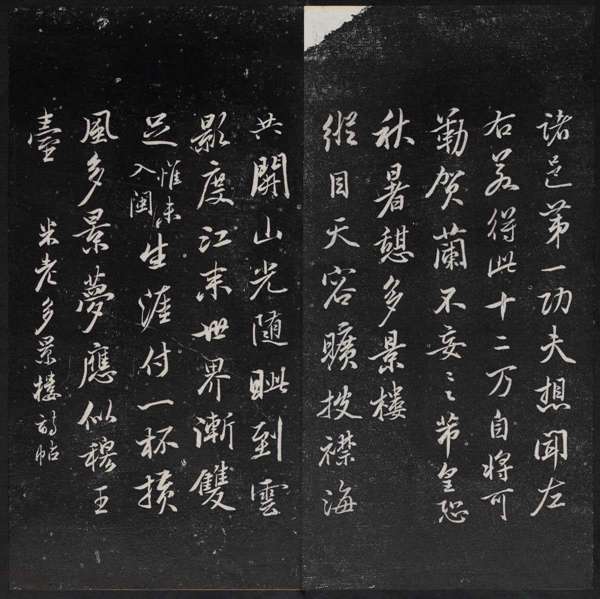 諸邑第一功夫想聞左
右若得此十二万自將可
勤賀蘭不妄〻芾皇恐
秋暑憩多景樓
縱目天容曠披襟海
共開山光隨眦到雲
影度江来世界漸雙
足惟未入閩生涯付一杯横
風多景夢應似穆王
臺
米老多景樓詩帖